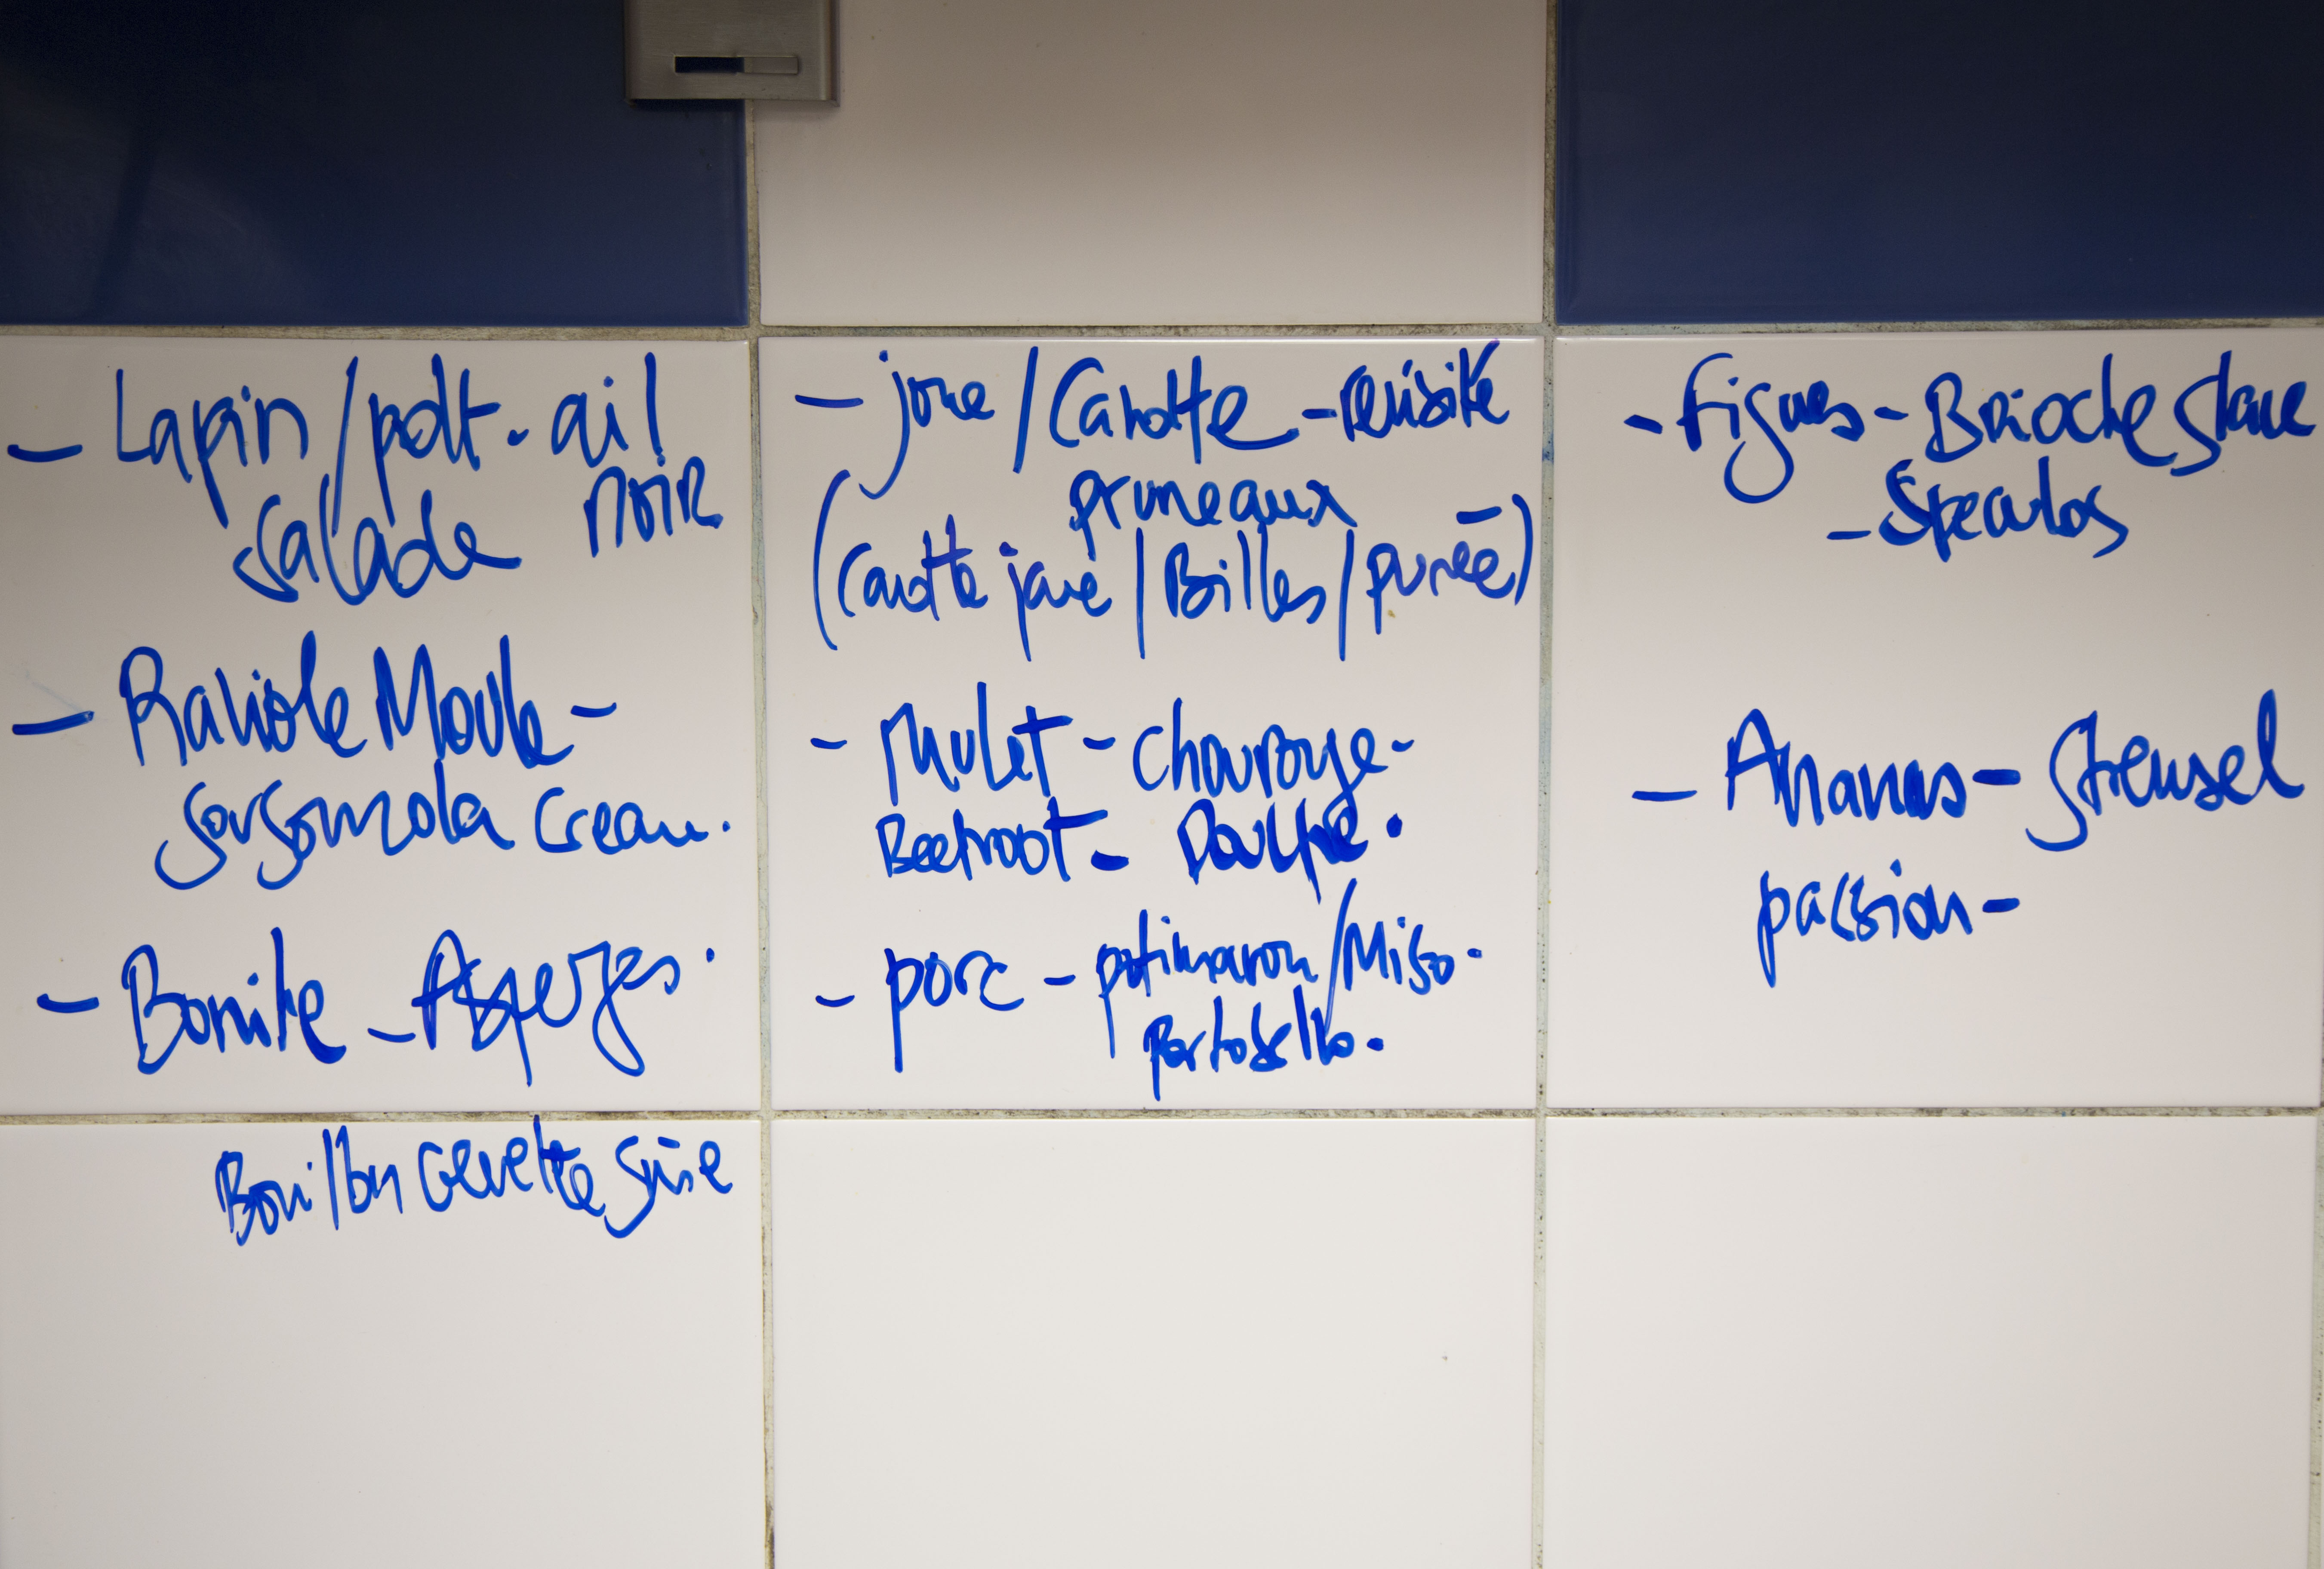 - Lapin / polt. ail
noir
salade
- Raviole Moule -
gorgonzola cream.
- Bonite - Asperges.
Bouillon crevette grise
- joue / Carotte - revisité
pruneaux
(Carotte jaune / Billes / purée)
- Mulet - chourouge -
Beetroot -
- porc - potimaron / Miso.
Portobello.
- Figues - Brioche glace
- Speculos
- Ananas - streusel
passion -